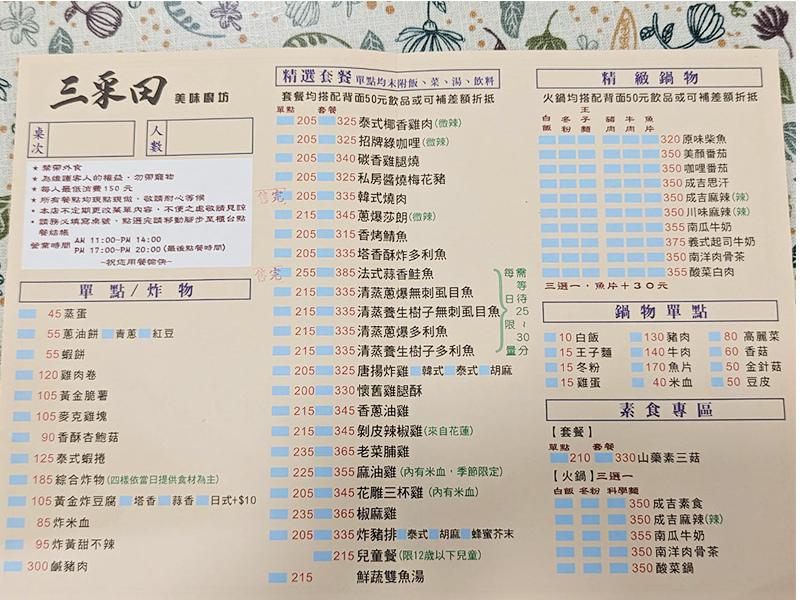 三采田 美味廚坊
桌次
人數
★ 禁帶外食
★ 為維護客人的權益，勿帶寵物
★ 每人最低消費150元
★ 所有餐點均現點現做，敬請耐心等候
★ 本店不定期更改菜單內容，不便之處敬請見諒
★ 請務必填寫桌號，點選完請移動腳步至櫃台點餐結帳
營業時間 AM 11:00~PM 14:00
PM 17:00~PM 20:00 (最後點餐時間)
~祝您用餐愉快~
單點/炸物
45 蒸蛋
55 蔥油餅 青蔥 紅豆
55 蝦餅
120 雞肉卷
105 黃金脆薯
105 麥克雞塊
90 香酥杏鮑菇
125 泰式蝦捲
185 綜合炸物(四樣依當日提供食材為主)
105 黃金炸豆腐 塔香 蒜香 日式+$10
85 炸米血
95 炸黃甜不辣
300 鹹豬肉
精選套餐 單點均未附飯、菜、湯、飲料
套餐均搭配背面50元飲品或可補差額折抵
單點 套餐
205 325 泰式椰香雞肉(微辣)
205 325 招牌綠咖哩(微辣)
205 340 碳香雞腿燒
205 325 私房醬燒梅花豬
售完 205 335 韓式燒肉
215 345 蔥爆莎朗(微辣)
205 315 香烤鯖魚
205 335 塔香酥炸多利魚
售完 255 385 法式蒜香鮭魚
215 335 清蒸蔥爆無刺虱目魚
215 335 清蒸養生樹子無刺虱目魚
215 335 清蒸蔥爆多利魚
215 335 清蒸養生樹子多利魚
每日限量 需等待25~30分
205 325 唐揚炸雞 韓式 泰式 胡麻
200 330 懷舊雞腿酥
215 345 香蔥油雞
215 345 剝皮辣椒雞(來自花蓮)
235 365 老菜脯雞
225 355 麻油雞(內有米血，季節限定)
205 345 花雕三杯雞(內有米血)
235 365 椒麻雞
205 335 炸豬排 泰式 胡麻 蜂蜜芥末
215 兒童餐(限12歲以下兒童)
215 鮮蔬雙魚湯
精緻鍋物
火鍋均搭配背面50元飲品或可補差額折抵
白飯 冬粉 王子麵 豬肉 牛肉 魚片
320 原味柴魚
350 美顏番茄
350 咖哩番茄
350 成吉思汗
350 成吉麻辣(辣)
350 川味麻辣(辣)
355 南瓜牛奶
375 義式起司牛奶
350 南洋肉骨茶
355 酸菜白肉
三選一，魚片+30元
鍋物單點
10 白飯 130 豬肉 80 高麗菜
15 王子麵 140 牛肉 60 香菇
15 冬粉 170 魚片 50 金針菇
15 雞蛋 40 米血 50 豆皮
素食專區
【套餐】
單點 套餐
210 330 山藥素三菇
【火鍋】三選一
白飯 冬粉 科學麵
350 成吉素食
350 成吉麻辣(辣)
355 南瓜牛奶
350 南洋肉骨茶
350 酸菜鍋